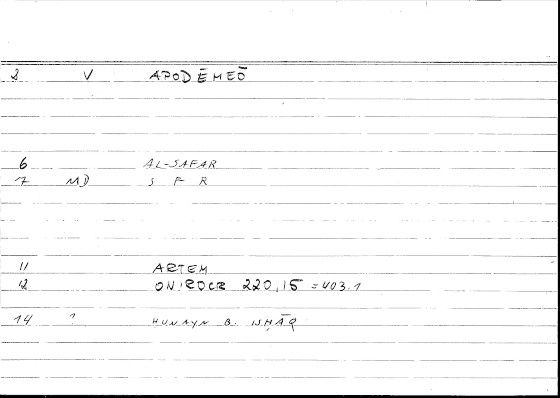 2 V APODĒMEŌ
6 AL-SAFAR
7 MD S F R
11 ARTEM
12 ONIROCR 220,15 = 403.1
14 ? HUNAYN B. ISḤĀQ